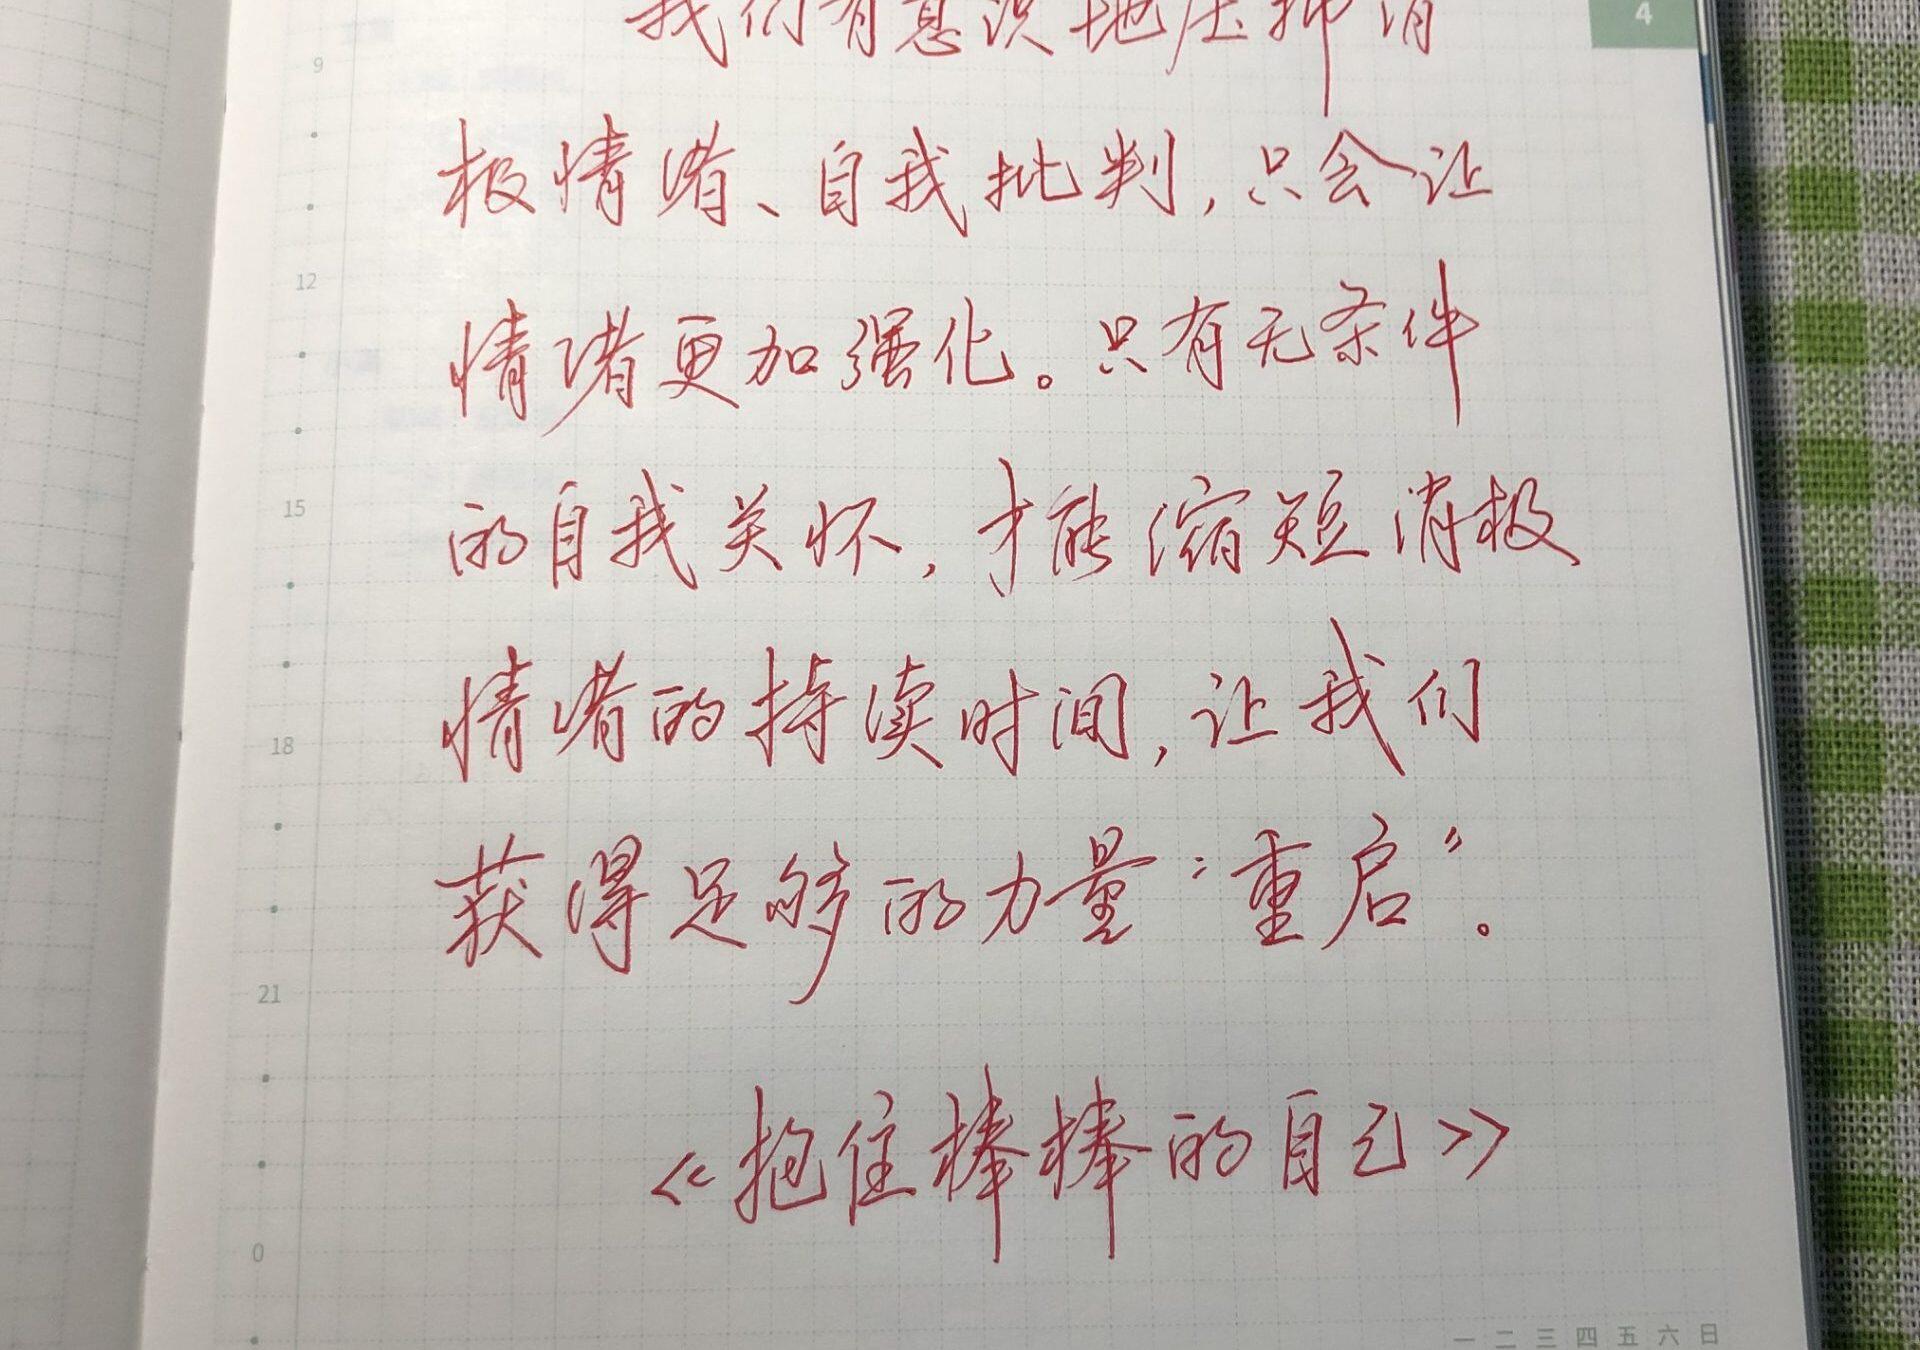 4
我们有意识地压抑消
9
极情绪、自我批判,只会让
12
情绪更加强化。只有无条件
15
的自我关怀,才能缩短消极
情绪的持续时间,让我们
18
获得足够的力量“重启”。
21
《抱住棒棒的自己》
0
一 二 三 四 五 六 日